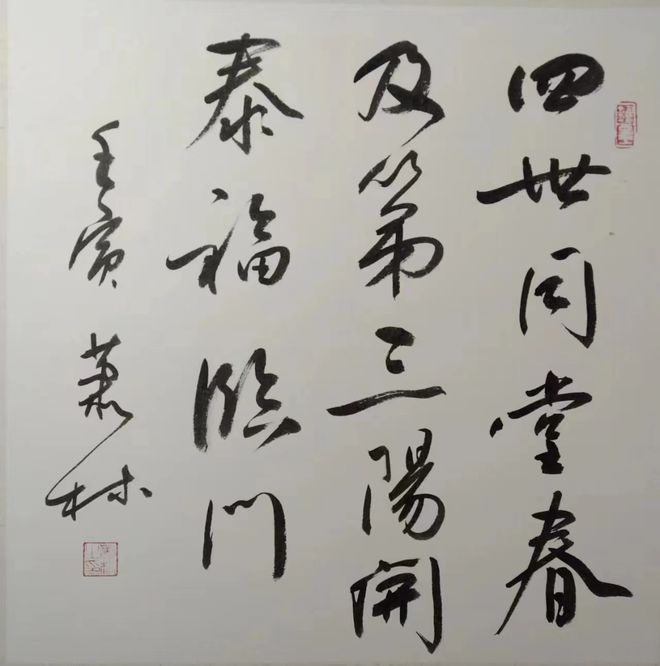 四世同堂春
及第三陽開
泰福臨門
壬寅 蕭林